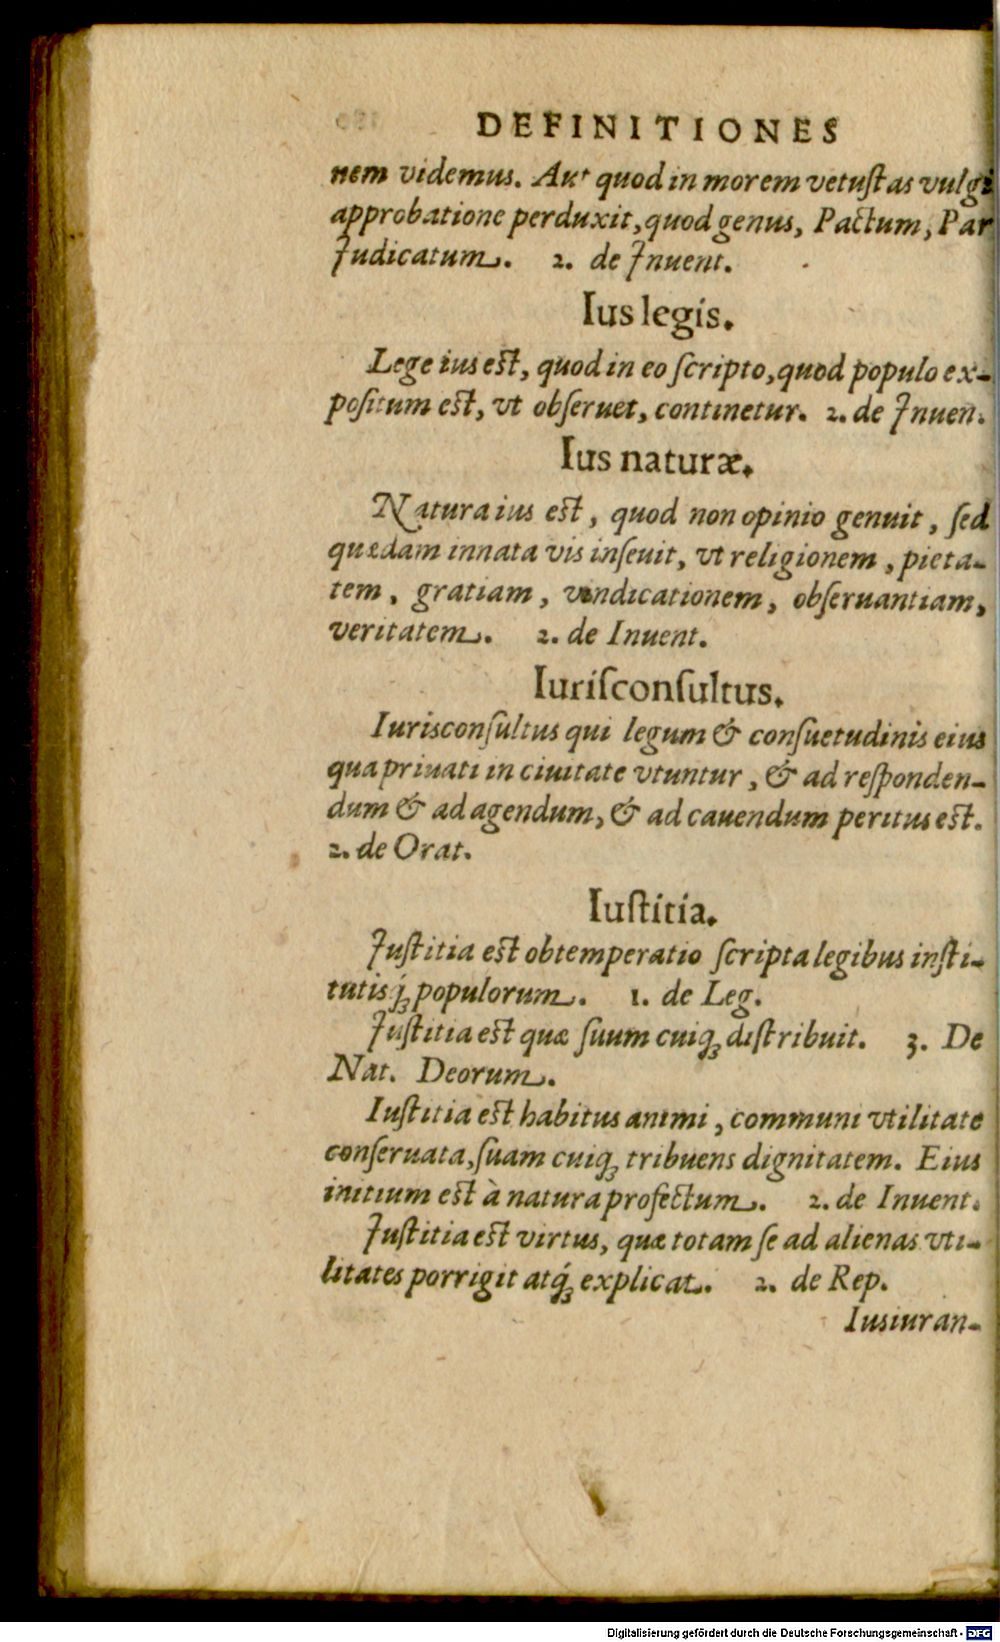 DEFINITIONES
nem videmus. Aut quod in morem vetuſtas vulgi
approbatione perduxit, quod genus, Pactum, Par
Judicatum. 2. de Jnuent.
Ius legis.
Lege ius eſt, quod in eo ſcripto, quod populo ex-
poſitum eſt, vt obſeruet, continetur. 2. de Jnuen.
Ius naturæ.
Natura ius eſt, quod non opinio genuit, ſed
quædam innata vis inſeuit, vt religionem, pieta-
tem, gratiam, vindicationem, obſeruantiam,
veritatem. 2. de Inuent.
Iuriſconſultus.
Iurisconſultus qui legum & conſuetudinis eius
qua priuati in ciuitate vtuntur, & ad reſponden-
dum & ad agendum, & ad cauendum peritus eſt.
2. de Orat.
Iuſtitia.
Juſtitia eſt obtemperatio ſcripta legibus inſti-
tutisq́ꝫ populorum. 1. de Leg.
Juſtitia eſt quæ ſuum cuiqꝫ diſtribuit. 3. De
Nat. Deorum.
Iuſtitia eſt habitus animi, communi vtilitate
conſeruata, ſuam cuiqꝫ tribuens dignitatem. Eius
initium eſt à natura profectum. 2. de Inuent.
Juſtitia eſt virtus, quæ totam ſe ad alienas vti-
litates porrigit atq́ꝫ explicat. 2. de Rep.
Iusiuran-
Digitalisierung gefördert durch die Deutsche Forschungsgemeinschaft - DFG